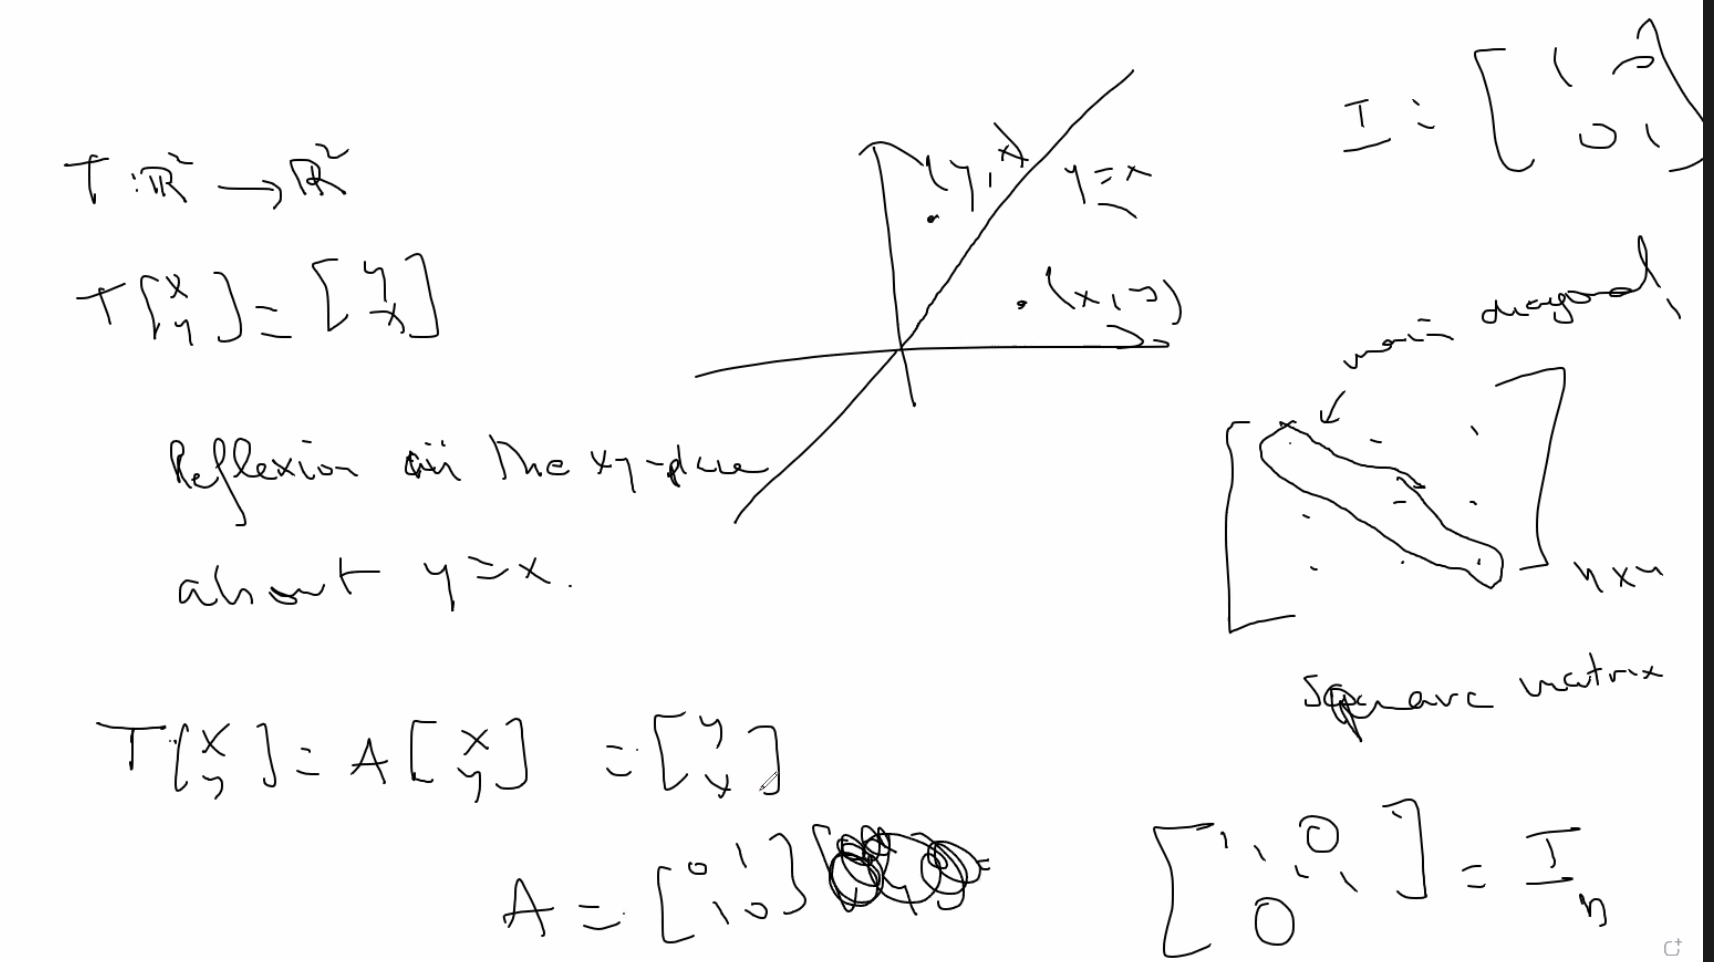 T : ℝ² → ℝ²
T[x y] = [y x]
Reflexion in the xy-plane
about y = x.
T[x y] = A[x y] = [y x]
A = [0 1 1 0]
(y, x)
y = x
(x, y)
I = [1 0 0 1]
main diagonal,
n x n
Square matrix
[1 1 0 1 1 0] = I n